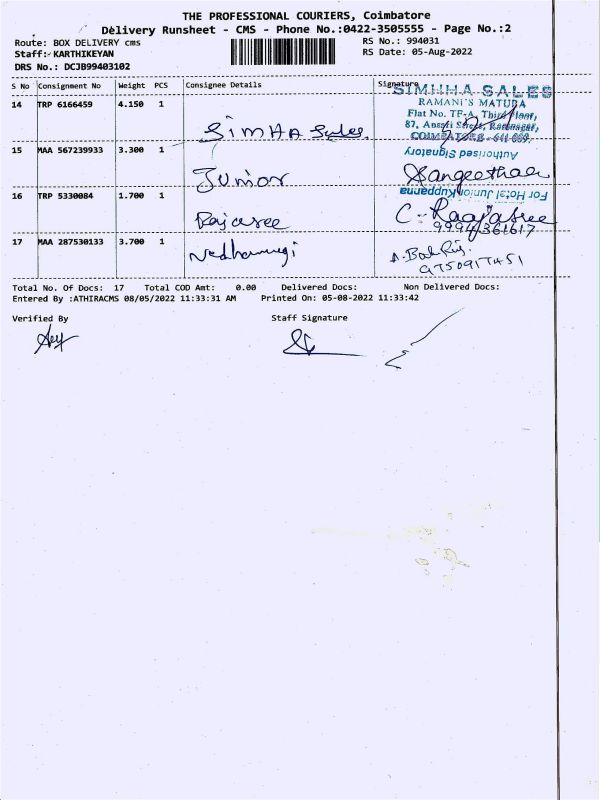 THE PROFESSIONAL COURIERS, Coimbatore
Delivery Runsheet - CMS - Phone No.:0422-3505555 - Page No.:2
Route: BOX DELIVERY cms
RS No.: 994031
Staff: KARTHIKEYAN
RS Date: 05-Aug-2022
DRS No.: DCJB99403102
S No Consignment No Weight PCS Consignee Details Signature
SIMHHA SALES
14 TRP 6166459 4.150 1
RAMANI'S MATURA
Flat No. TF-A, Third Floor,
SIMHA Sales
COIMBATORE - 641 009.
15 MAA 567239933 3.300 1
Authorised Signatory
Junior
Sangeetha
16 TRP 5330084 1.700 1
For Hotel Junior Kuppanna
Rajasree
C. Raajasree
9994361617
17 MAA 287530133 3.700 1
9750917451
Total No. Of Docs: 17 Total COD Amt: 0.00 Delivered Docs: Non Delivered Docs:
Entered By :ATHIRACMS 08/05/2022 11:33:31 AM Printed On: 05-08-2022 11:33:42
Verified By Staff Signature